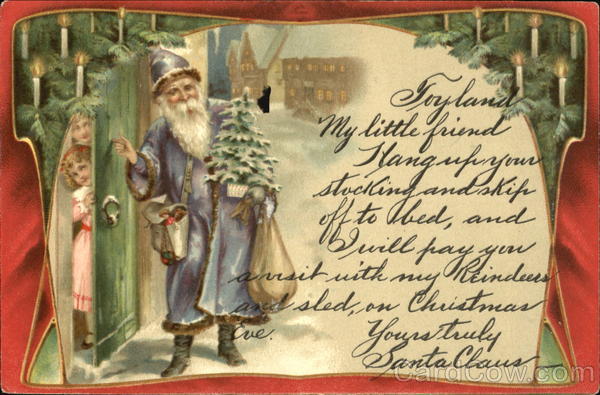 Toyland
My little friend
Hang up your
stocking and skip
off to bed, and
I will pay you
a visit with my Reindeers
and sled, on Christmas
Eve.
Yours truly
Santa Claus
CardCow.com